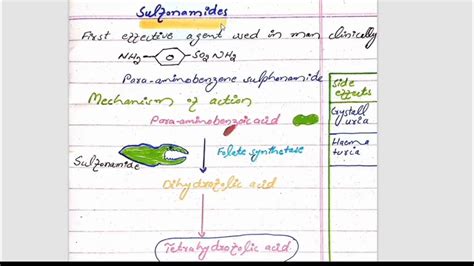 Sulfonamides
First effective agent used in man clinically
NH2 SO2 NH2
Para-aminobenzene sulphonamide
Mechanism of action
Para-aminobenzoic acid
Folate synthetase
Sulfonamide
Dihydrofolic acid
Tetrahydrofolic acid
Side
effects
Crystall
uria
Haema
turia